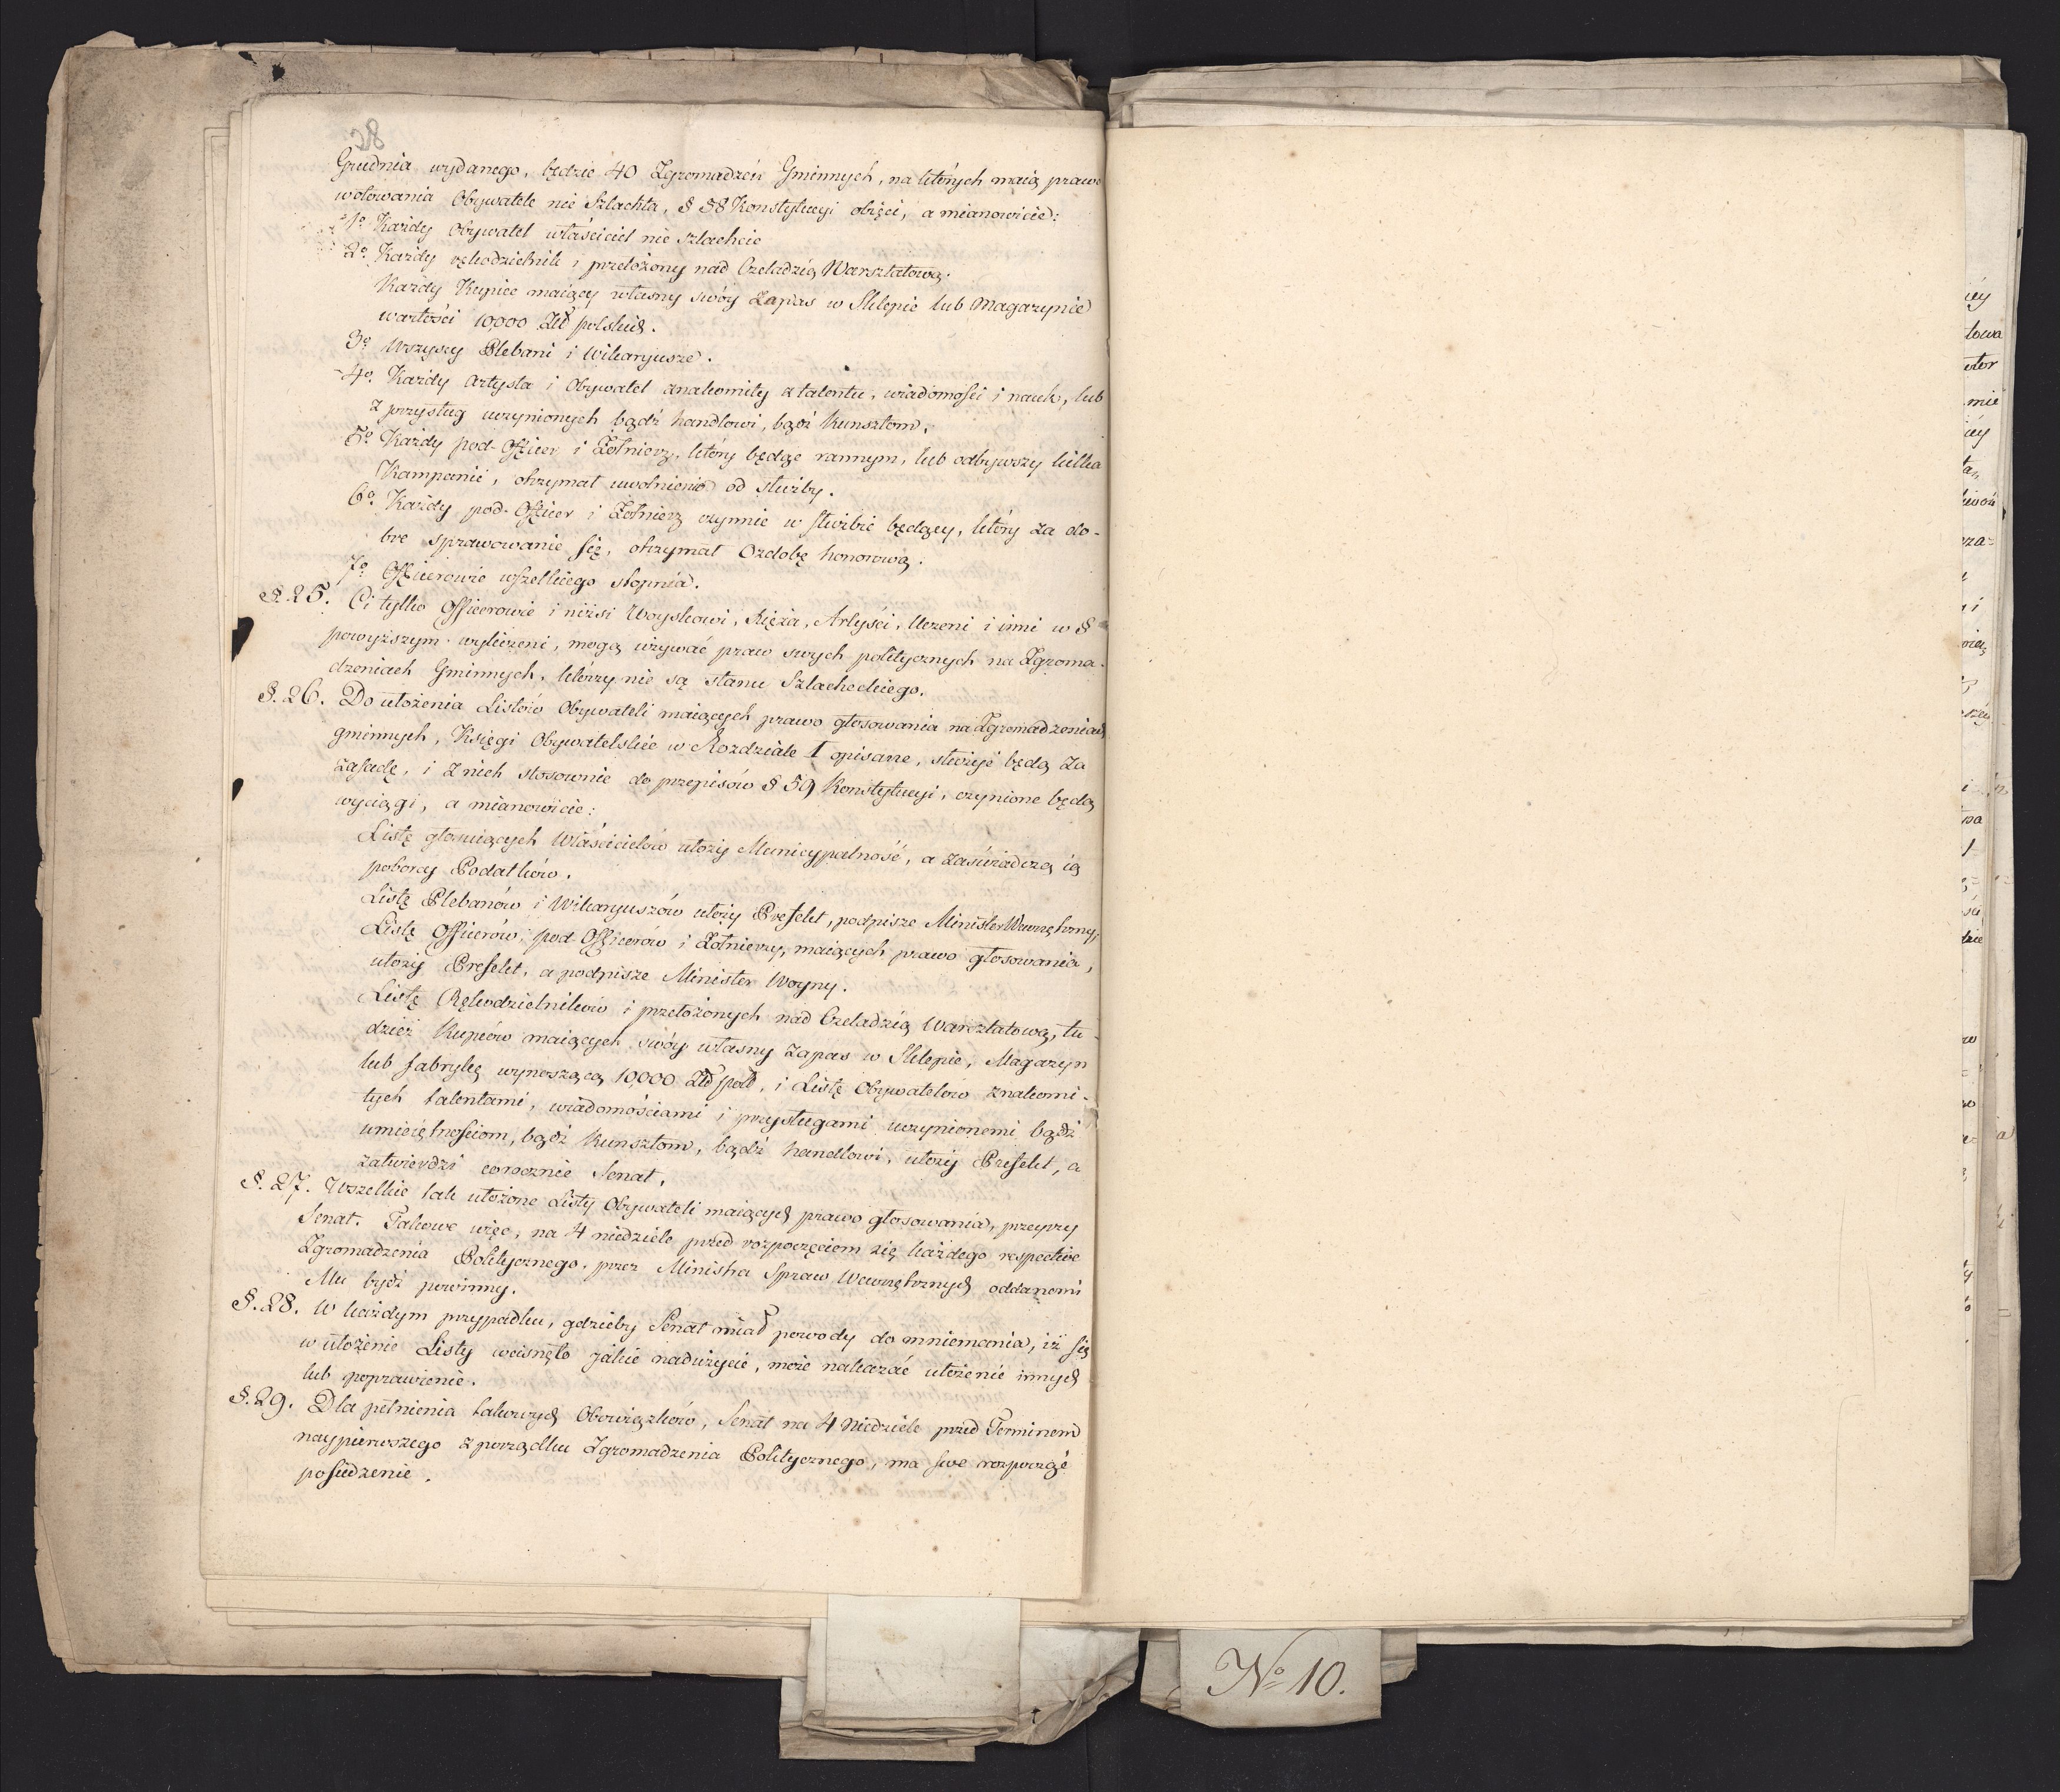 Grudnia wydanego, będzie 40 Zgromadzeń Gminnych, na których maią prawo
wotowania Obywatele nie Szlachta, § 58 Konstytucyi obięci, a mianowicie:
1º Każdy Obywatel właściciel nie szlachcic
2º Każdy rękodzielnik i przełożony nad Czeladzią Warsztatową.
Każdy Kupiec maiący własny swóy zapas w Sklepie lub Magazynie
wartości 10,000 Złł polskich.
3º Wszyscy Plebani i Wikaryusze.
4º Każdy Artysta i Obywatel znakomity z talentu, wiadomości i nauk, lub
z przysług uczynionych bądź handlowi, bądź kunsztom.
5º Każdy pod-Officer i Żołnierz, który będąc rannym, lub odbywszy kilka
Kampanii, otrzymał uwolnienie od służby.
6º Każdy pod-Officer i Żołnierz czynnie w służbie będący, który za do-
bre sprawowanie się, otrzymał Ozdobę honorową.
7º Officerowie wszelkiego stopnia.
§. 25. Ci tylko Officerowie i niżsi Woyskowi, Xięża, Artyści, Uczeni i inni w §
powyższym wyliczeni, mogą używać praw swych politycznych na Zgroma-
dzeniach Gminnych, którzy nie są stanu Szlacheckiego.
§. 26. Do ułożenia Listów Obywateli maiących prawo głosowania na Zgromadzeniach
gminnych, Księgi Obywatelskie w Rozdziale I opisane, służyć będą za
zasadę, i z nich stosownie do przepisów § 59 Konstytucyi, czynione będą
wyciągi, a mianowicie:
Listę głosuiących Właścicielów ułoży Municypalność, a zaświadczą ią
poborcy Podatków.
Listę Plebanów i Wikaryuszów ułoży Prefekt, podpisze Minister Wewnętrzny,
Listę Officerów, pod Officerów i Żołnierzy, maiących prawo głosowania,
ułoży Prefekt, a podpisze Minister Woyny.
Listę Rękodzielników i przełożonych nad Czeladzią Warsztatową, tu-
dzież Kupców maiących swóy własny zapas w Sklepie, Magazyn
lub fabrykę wynoszącą 10,000 Złł poll, i Listę Obywatelów znakomi-
tych talentami, wiadomościami i przysługami uczynionemi bądź
umieiętnościom, bądź kunsztom, bądź handlowi, ułoży Prefekt, a
zatwierdzi corocznie Senat.
§. 27. Wszelkie tak ułożone Listy Obywateli maiących prawo głosowania, przeyrzy
Senat. Takowe więc, na 4 niedziele przed rozpoczęciem się każdego respective
Zgromadzenia Politycznego, przez Ministra Spraw Wewnętrznych oddanemi
Mu bydź powinny.
§. 28. W każdym przypadku, gdzieby Senat miał powody do mniemania, iż się
w ułożenie Listy wcisnęło jakie nadużycie, może nakazać ułożenie innych
lub poprawienie.
§. 29. Dla pełnienia takowych Obowiązków, Senat na 4 Niedziele przed Terminem
naypierwszego z porządku Zgromadzenia Politycznego, ma swe rozpocząć
posiedzenie.
Nº 10.